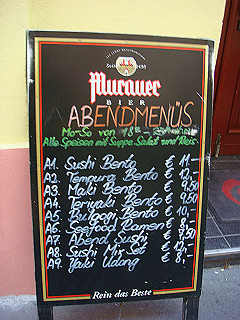 Seit 1495
Murauer
BIER
ABENDMENÜS
Mo-So von 18ºº -
Alle Speisen mit Suppe Salat und Reis
A1. Sushi Bento € 11.-
A2. Tempura Bento € 12.-
A3. Maki Bento € 9,50
A4. Teriyaki Bento € 9,50
A5. Bulgogi Bento € 10.-
A6. Seefood Ramen € 8.-
A7. Abend Sushi € 9,50
A8. Sushi Mix Set € 12.-
A9. Yaki Udong € 8.-
Rein das Beste